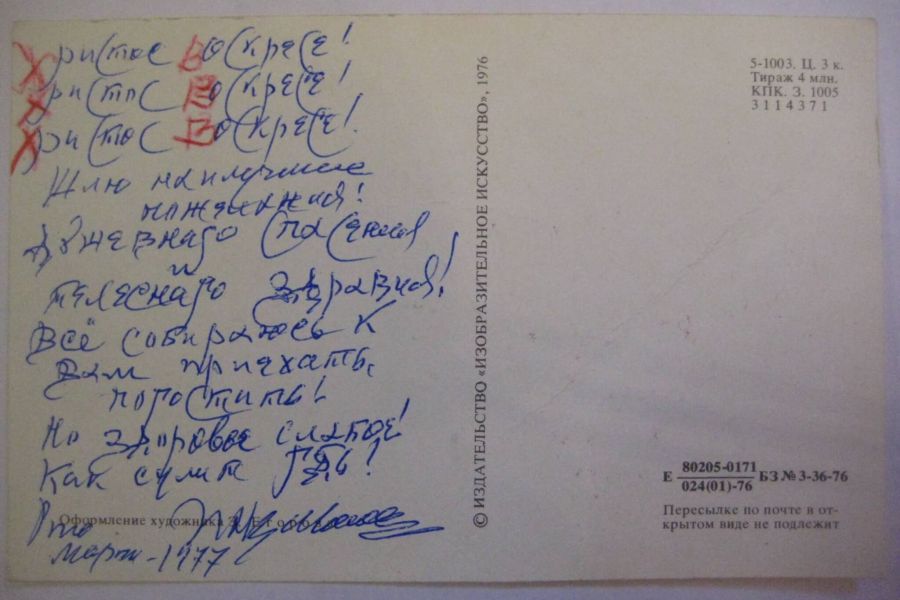 Христос Воскресе!
Христос Воскресе!
Христос Воскресе!
Шлю наилучшие
пожелания!
Душевнаго спасения
и
телеснаго здравия!
Всё собираюсь к
Вам приехать,
погостить!
Но здоровье слабое!
Как сулит Гдь!
Оформление художника
март-1977
© ИЗДАТЕЛЬСТВО «ИЗОБРАЗИТЕЛЬНОЕ ИСКУССТВО», 1976
5-1003. Ц. 3 к.
Тираж 4 млн.
КПК. З. 1005
3114371
Е 80205-0171 БЗ № 3-36-76
024(01)-76
Пересылке по почте в от-
крытом виде не подлежит